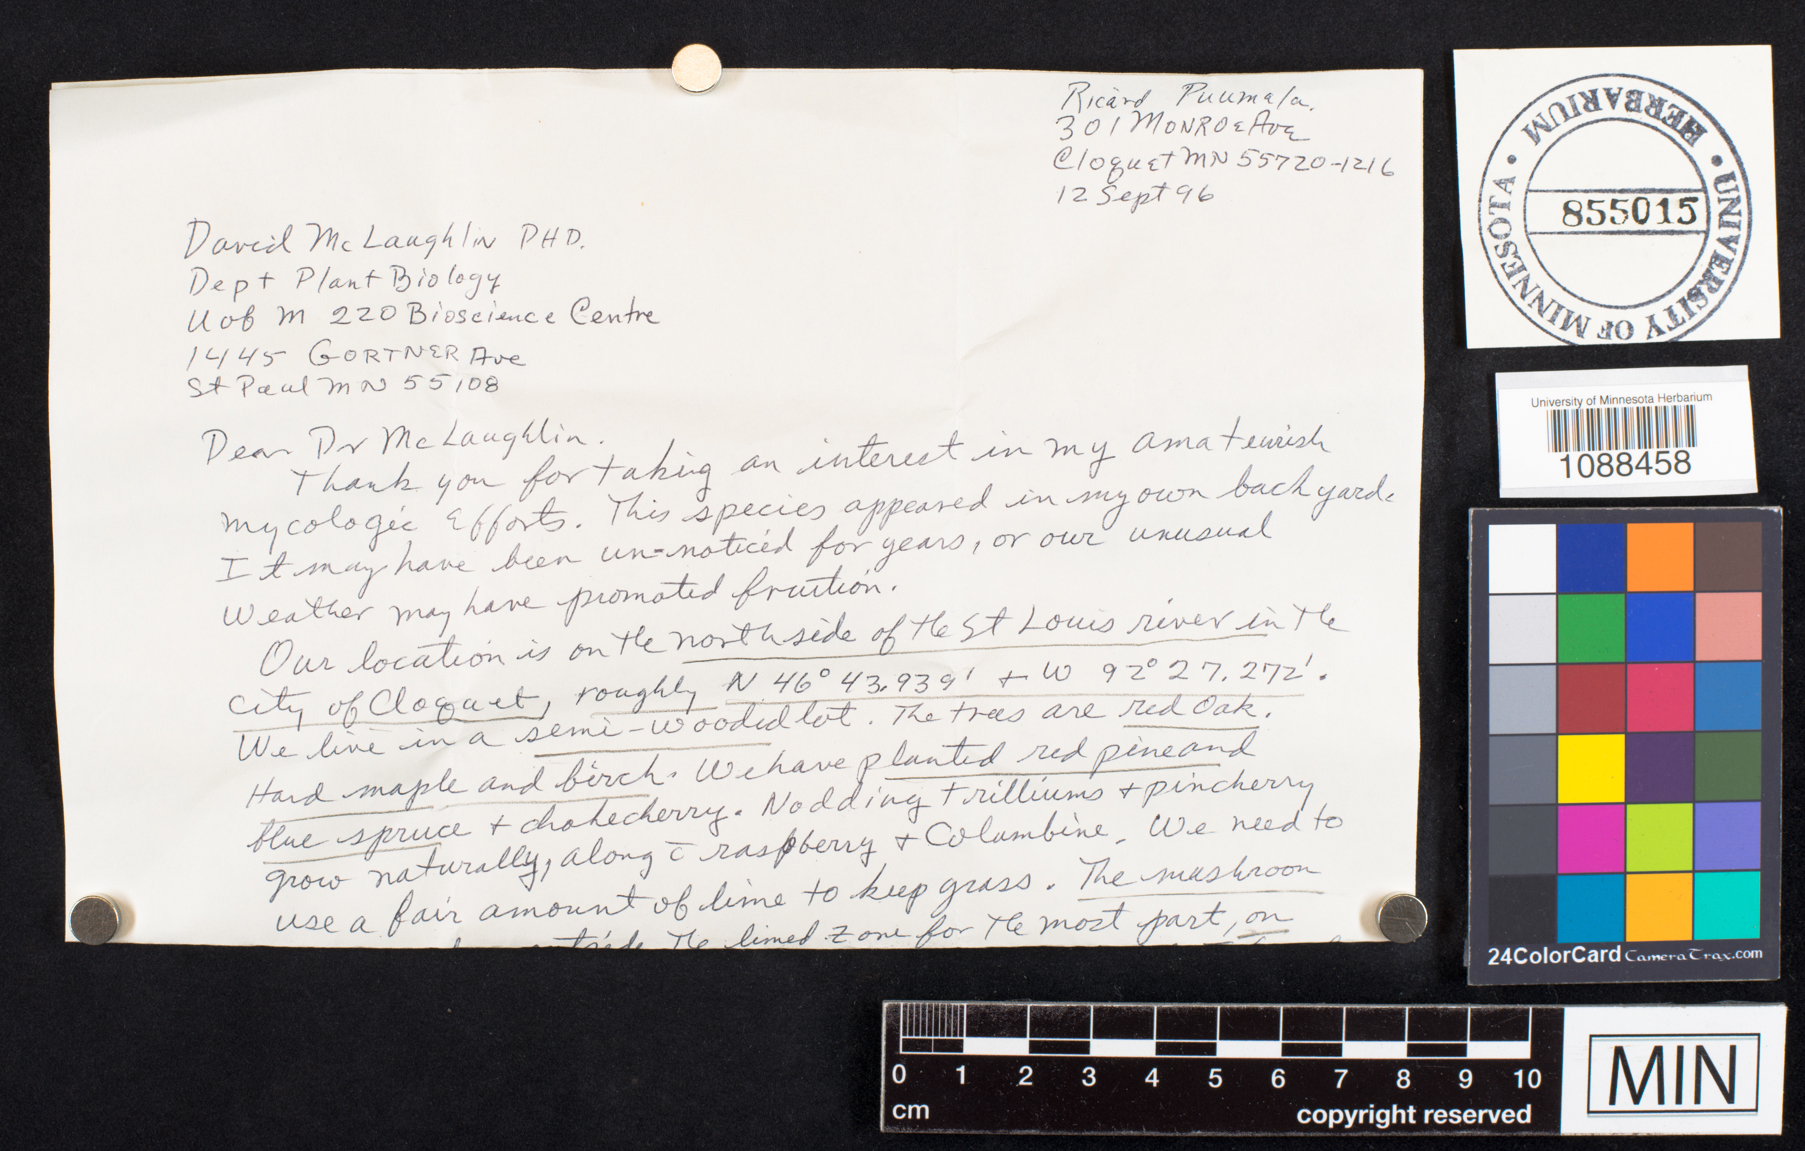 Ricard Puumala.
301 MONROE Ave
Cloquet MN 55720-1216
12 Sept 96
David McLaughlin PHD.
Dept Plant Biology
U of M 220 Bioscience Centre
1445 GORTNER Ave
St Paul MN 55108
Dear Dr McLaughlin.
Thank you for taking an interest in my amateurish
mycologic efforts. This species appeared in my own back yard.
It may have been un-noticed for years, or our unusual
weather may have promoted fruition.
Our location is on the north side of the St Louis river in the
city of Cloquet, roughly N 46° 43.939' + W 92° 27.272'.
We live in a semi-wooded lot. The trees are red Oak.
Hard maple and birch. We have planted red pine and
blue spruce + chokecherry. Nodding trilliums + pincherry
grow naturally, along c̄ raspberry + Columbine. We need to
use a fair amount of lime to keep grass. The mushroom
outside the limed zone for the most part, on
HERBARIUM • UNIVERSITY OF MINNESOTA •
855015
University of Minnesota Herbarium
1088458
24ColorCard CameraTrax.com
0 1 2 3 4 5 6 7 8 9 10
cm
copyright reserved
MIN